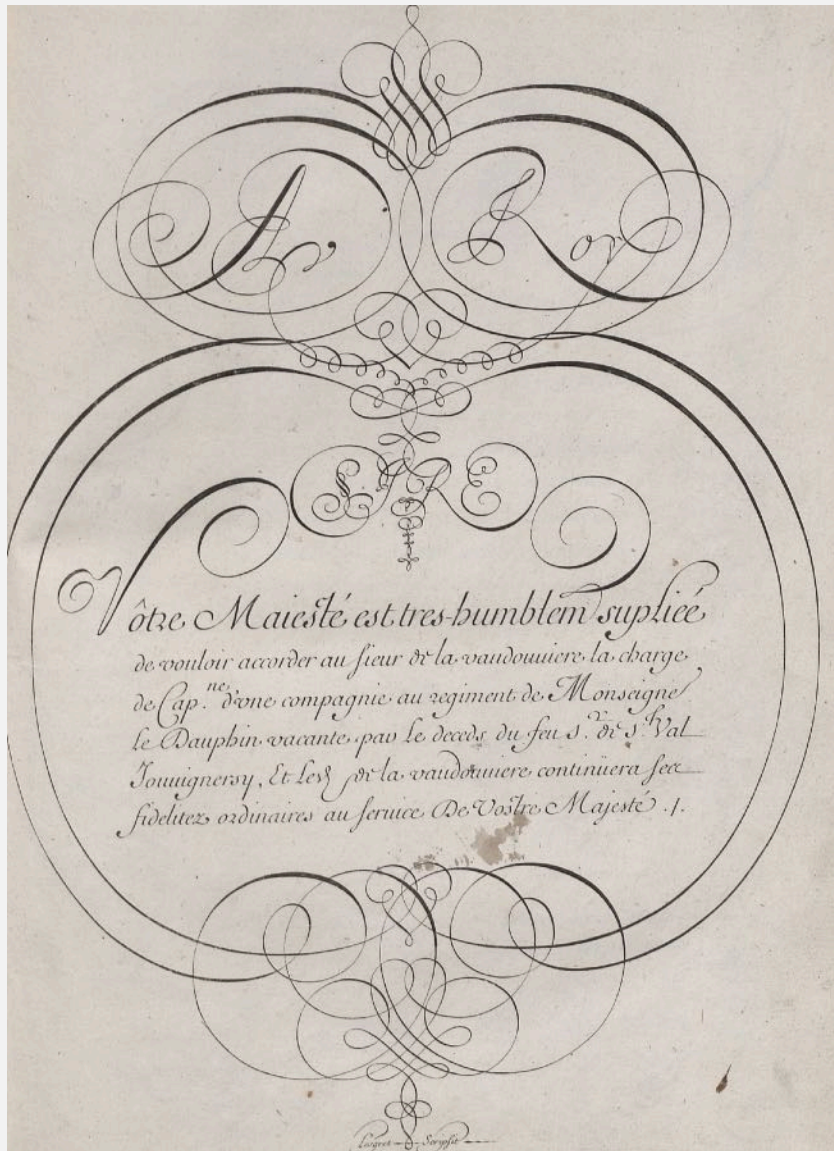 Au Roy
SIRE
Vôtre Maiesté est tres-humblem supliéé
de vouloir accorder au sieur de la vaudouuiere la charge
de Cap.ne d'vne compagnie au regiment de Monseigne
le Dauphin vacante par le deceds du feu s.r de s.t Val
Jouuignersy, Et led de la vaudouuiere continüera ses
fidelitez ordinaires au seruice De Vostre Majesté .1.
Scripsit